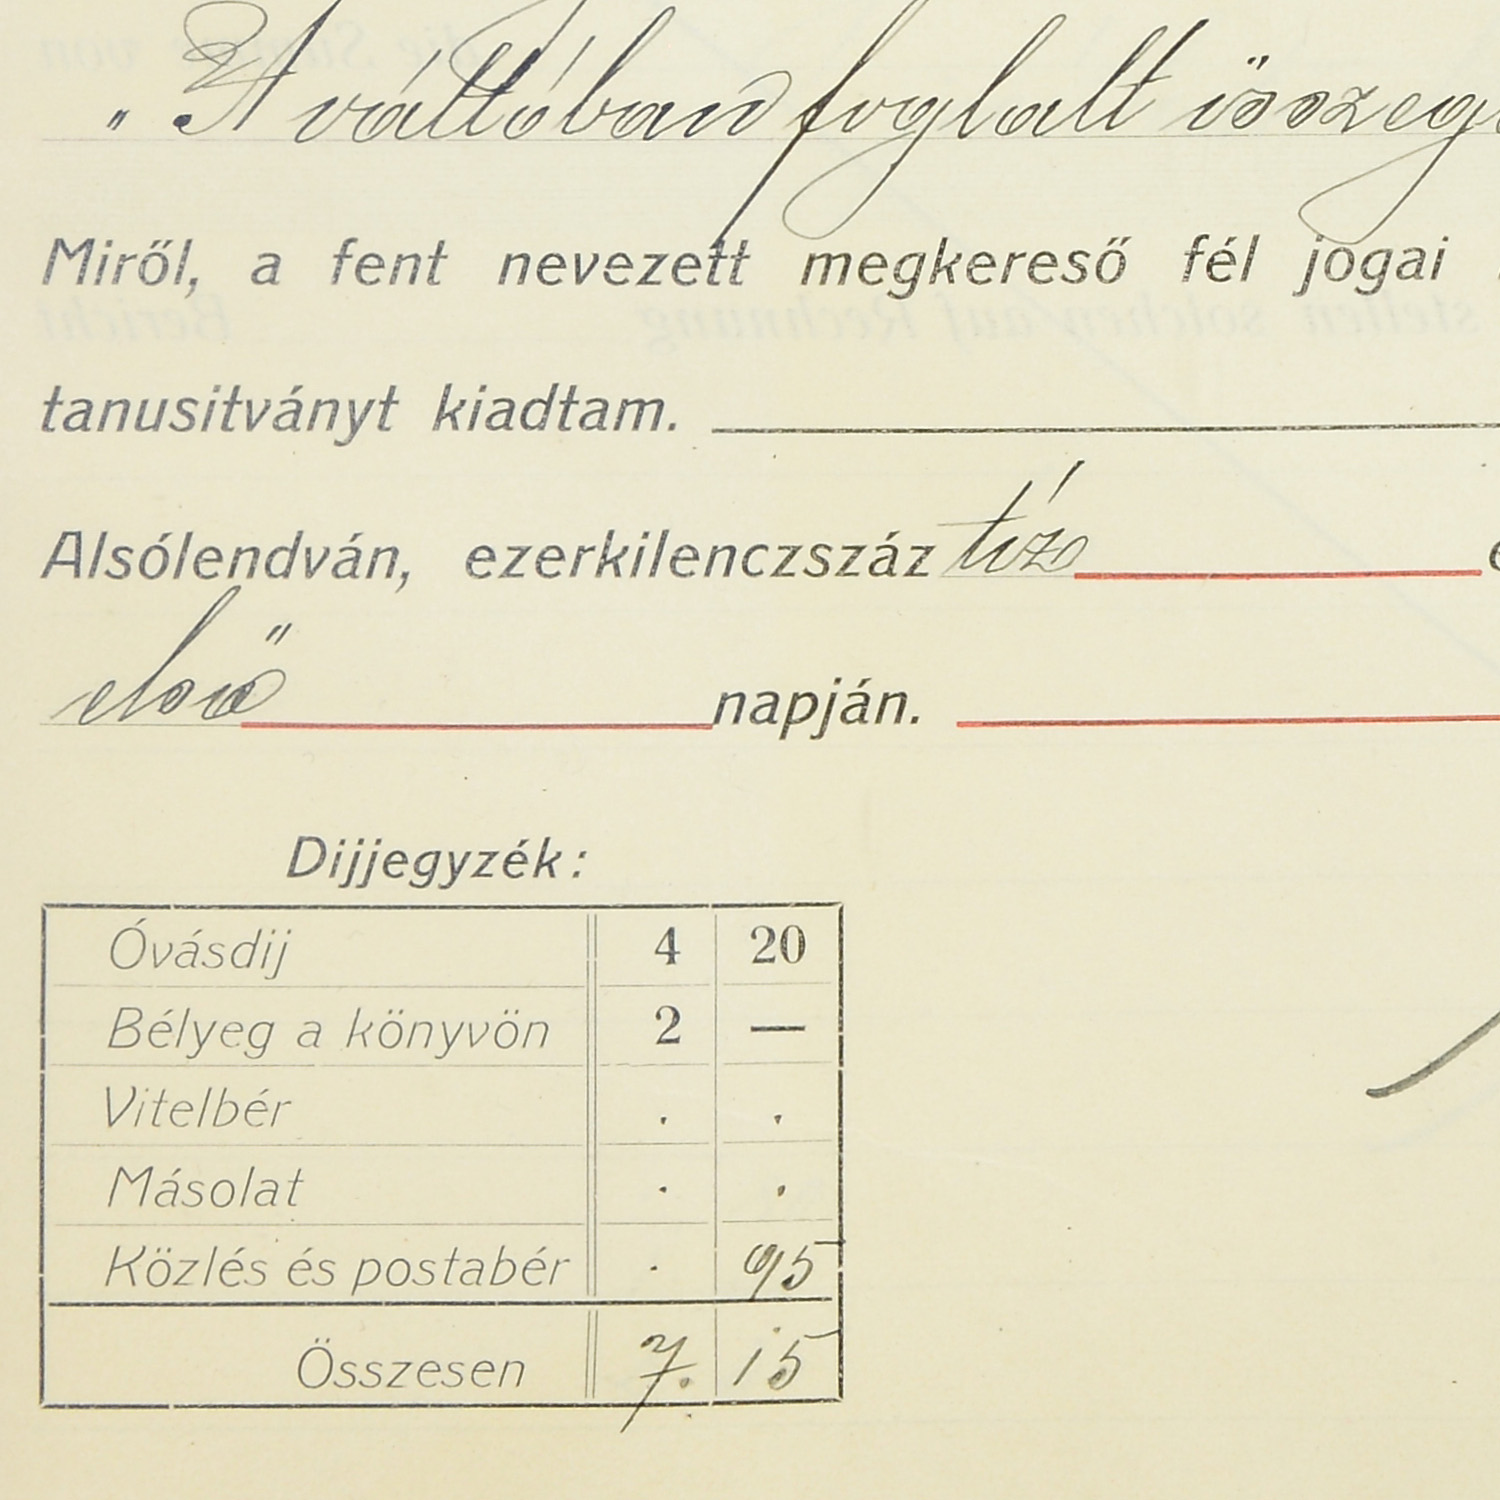 „A váltóban foglalt össze
Miről, a fent nevezett megkereső fél jogai
tanusitványt kiadtam.
Alsólendván, ezerkilenczszáz tíz
első napján.
Dijjegyzék:
Óvásdij 4 20
Bélyeg a könyvön 2 —
Vitelbér . .
Másolat . .
Közlés és postabér . 95
Összesen 7. 15